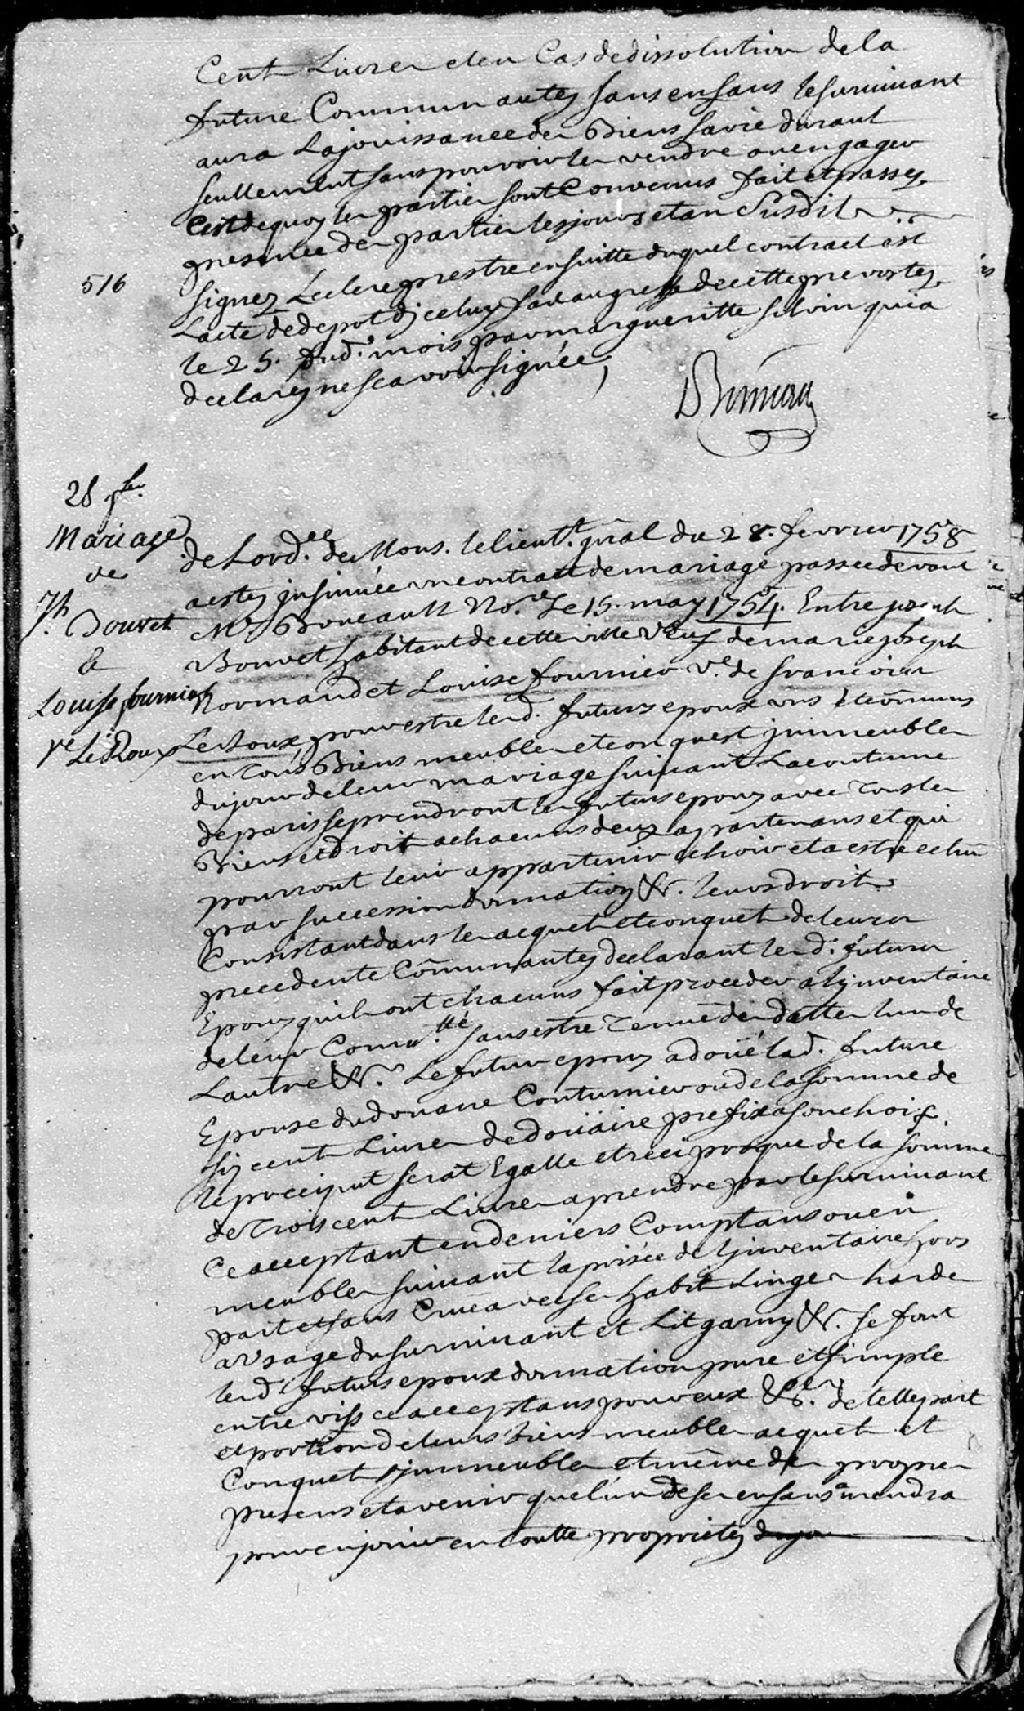 Cent Livres et en Cas de dissolution de la
future Communautez sans enfans le survivant
aura la jouissance des Biens sa vie durant
seullement sans pouvoir les vendre ou engager
C'est de quoy les parties sont Convenus fait et passez
presence des parties les jours et an Susdit
signez Leclerc prestre ensuitte duquel contract est
516
L'acte de depot d'iceluy fait au greffe de cette prevostez
le 25. dud. mois par margueritte selvin qui a
declarez ne scavoir signée,
28 fer
Mariage
de
Jh.
Bouvet
&
Louise fournier
ve LeRoux
de L'ord.ce de Mons. le lieut.t gñal du 28. fevrier 1758
a estez insinuée un contract de mariage passée devant
Me Boucault No.re Le 15. may 1754. Entre joseph
Bouvet habitant de cette ville Veuf de marie joseph
Normand et Louise fournier Ve. de francois
LeRoux, pour estre lesd. futurs epoux uns et communs
en tous Biens meubles et conquest immeubles
du jour de leur mariage suivant La coutume
de paris se prendront les futurs epoux avec tous les
Biens et droit a chacuns deux appartenans et qui
pourront leur appartenir echoir et a estre echus
par succession donnation &c. leurs droits
Consistant dans les acquet et conquet de leurs
precedente Communautez declarant lesd. futurs
Epoux qu'ils ont chacuns fait proceder a l'inventaire
de leur Comu.tté sans estre Tenüe des dettes l'un de
L'autre &c. Le futur epoux a doüé lad. future
Epouse du douaire Coutumier ou de la somme de
six cent Livres de doüaire prefix a son choix
le preciput serat Egalle et reciproque de la somme
de Trois cent Livres a prendre par le survivant
Ce acceptant en deniers Comptans ou en
meubles suivant la prisée de l'inventaire hors
part et sans Cruë avec ses habits Linges hardes
a l'usage du survivant et Lit garny &c. se font
lesd. futurs epoux donnation pure et simple
entre vifs ce acceptans pour eux &c. de telle part
et portion de leurs biens meubles acquet et
Conquet immeubles et même des propres
presens et a venir que l'un de ses enfans amendra
pour en jouir en toutte proprietez du jo